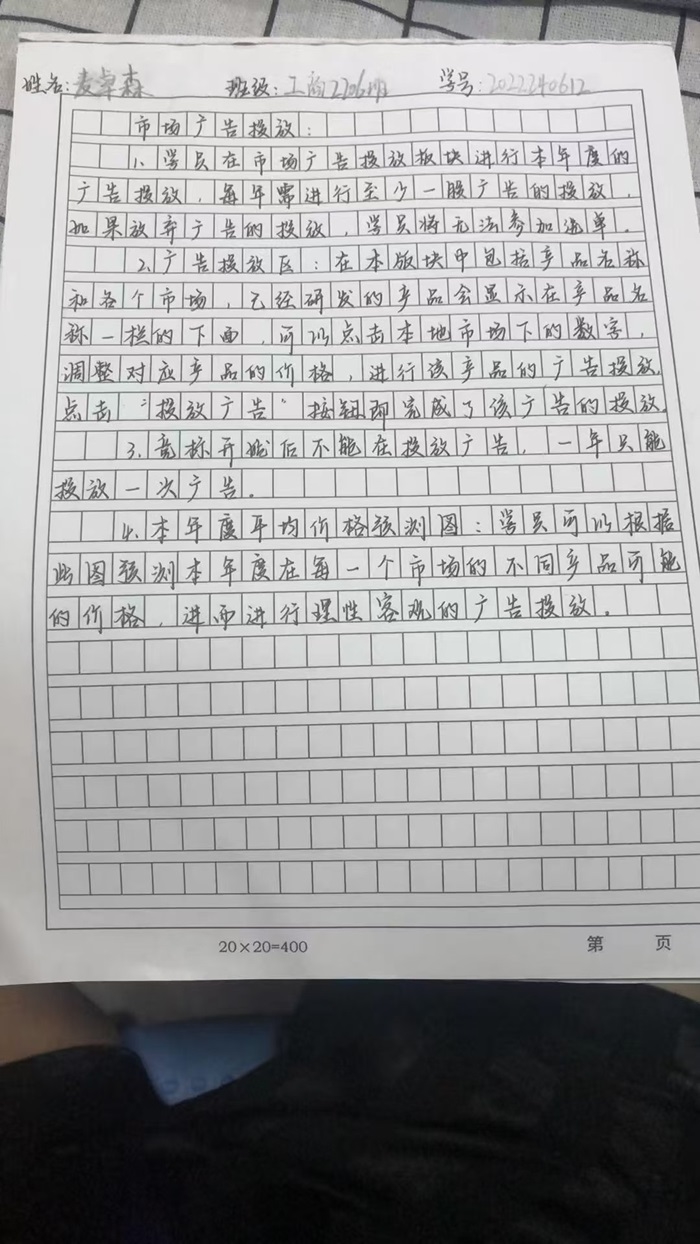 姓名:麦卓森 班级:工商2206班 学号:2022240612
市场广告投放:
1.学员在市场广告投放板块进行本年度的
广告投放,每年需进行至少一股广告的投放,
如果放弃广告的投放,学员将无法参加选单.
2.广告投放区:在本版块中包括产品名称
和各个市场,已经研发的产品会显示在产品名
称一栏的下面,可以点击本地市场下的数字,
调整对应产品的价格,进行该产品的广告投放.
点击“投放广告”按钮即完成了该广告的投放.
3.竞标开始后不能在投放广告,一年只能
投放一次广告.
4.本年度平均价格预测图:学员可以根据
此图预测本年度在每一个市场的不同产品可能
的价格,进而进行理性客观的广告投放.
20×20=400 第 页